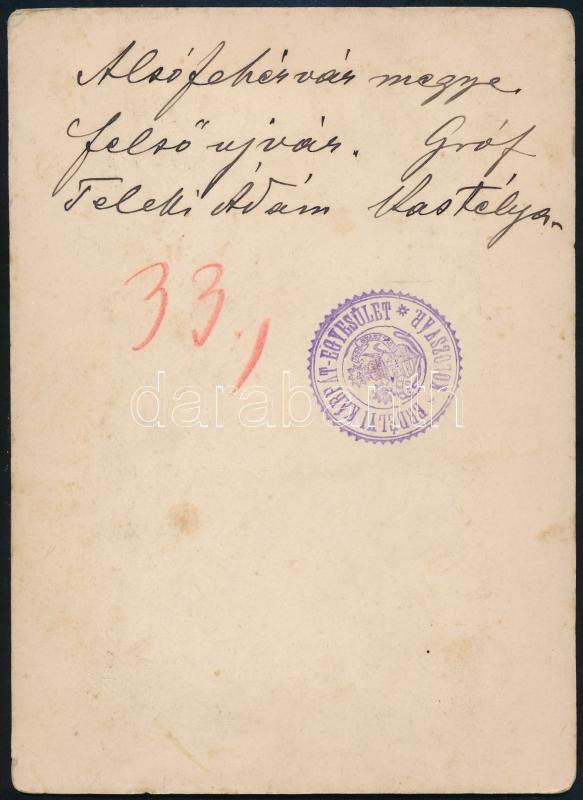 Alsófehérvár megye.
felső ujvár. Gróf
Teleki Ádám Kastélya.
33.,
ERDÉLYI KÁRPÁT-EGYESÜLET * KOLOZSVÁR *
darabanth